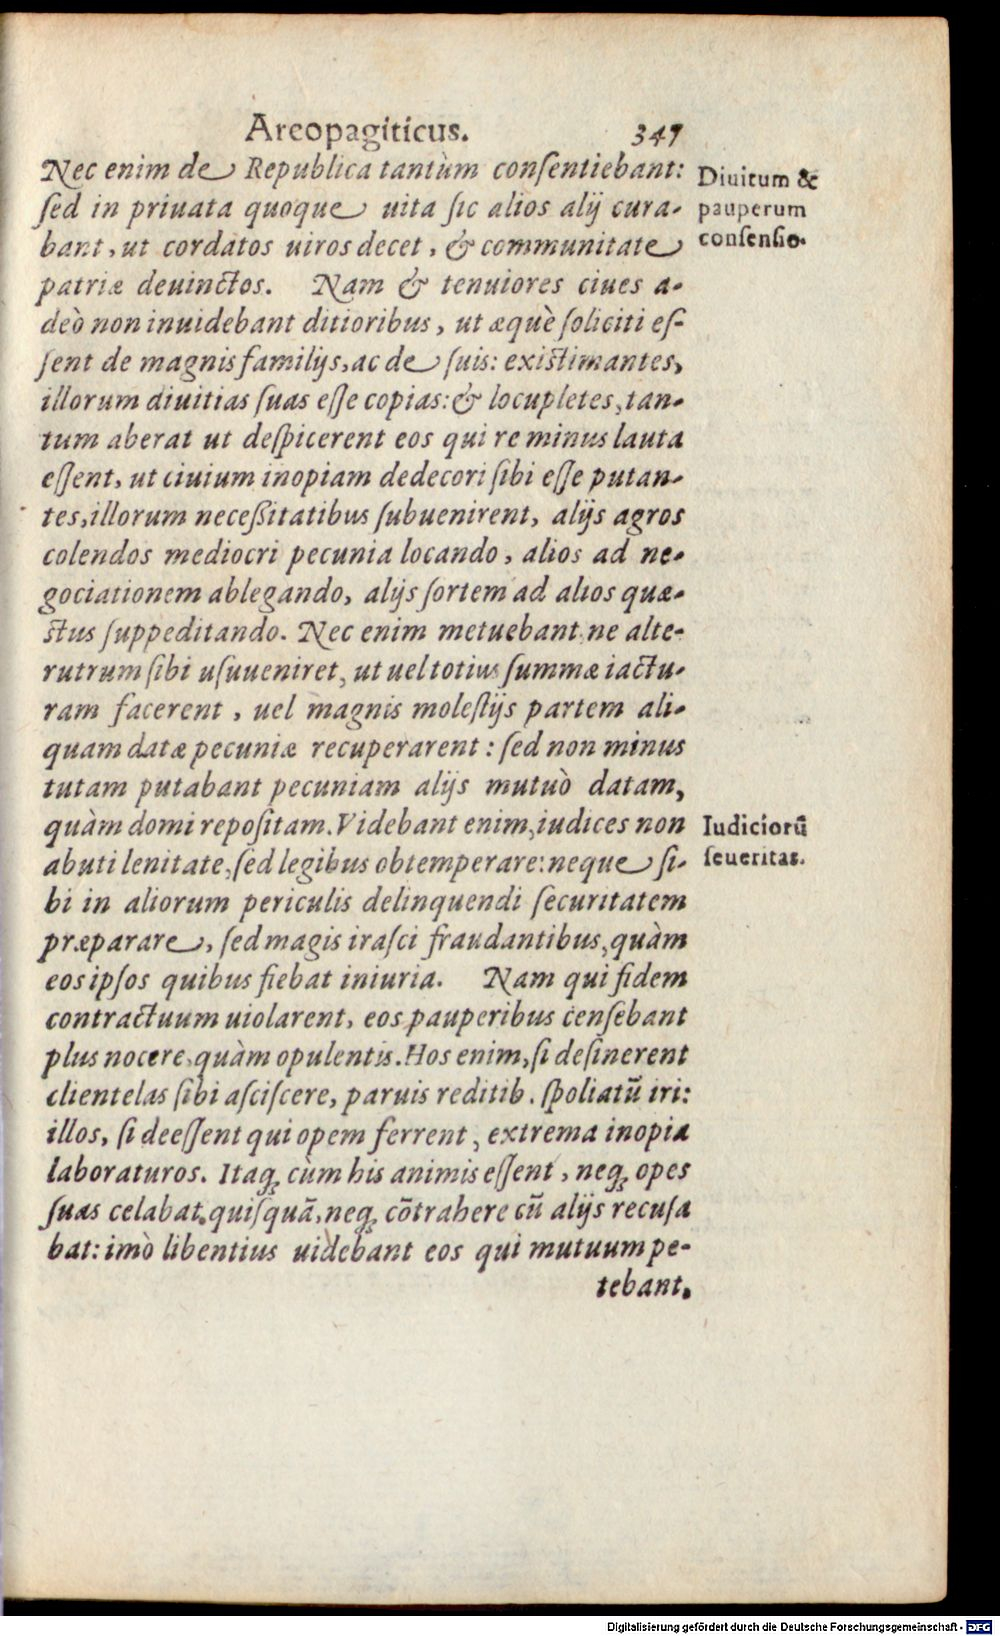 Areopagiticus. 347
Nec enim de Republica tantùm conſentiebant:
ſed in priuata quoque uita ſic alios alij cura-
bant, ut cordatos uiros decet, & communitate
patriæ deuinctos. Nam & tenuiores ciues a-
deò non inuidebant ditioribus, ut æquè ſoliciti eſ-
ſent de magnis familijs, ac de ſuis: existimantes,
illorum diuitias ſuas eſſe copias: & locupletes, tan-
tum aberat ut deſpicerent eos qui re minus lauta
eſſent, ut ciuium inopiam dedecori ſibi eſſe putan-
tes, illorum neceßitatibus ſubuenirent, alijs agros
colendos mediocri pecunia locando, alios ad ne-
gociationem ablegando, alijs ſortem ad alios quæ-
stus ſuppeditando. Nec enim metuebant ne alte-
rutrum ſibi uſuueniret, ut uel totius ſummæ iactu-
ram facerent, uel magnis moleſtijs partem ali-
quam datæ pecuniæ recuperarent: ſed non minus
tutam putabant pecuniam alijs mutuò datam,
quàm domi repoſitam. Videbant enim, iudices non
abuti lenitate, ſed legibus obtemperare: neque ſi-
bi in aliorum periculis delinquendi ſecuritatem
præparare, ſed magis iraſci fraudantibus, quàm
eos ipſos quibus fiebat iniuria. Nam qui fidem
contractuum uiolarent, eos pauperibus cenſebant
plus nocere, quàm opulentis. Hos enim, ſi deſinerent
clientelas ſibi aſciſcere, paruis reditib. ſpoliatũ iri:
illos, ſi deeſſent qui opem ferrent, extrema inopia
laboraturos. Itaq; cùm his animis eſſent, neq; opes
ſuas celabat quiſquã, neq; cõtrahere cũ alijs recuſa
bat: imò libentius uidebant eos qui mutuum pe-
tebant.
Diuitum &
pauperum
conſenſio.
Iudiciorũ
ſeueritas.
Digitalisierung gefördert durch die Deutsche Forschungsgemeinschaft - DFG